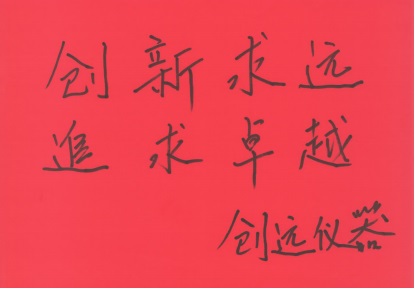 创新求远
追求卓越
创远仪器